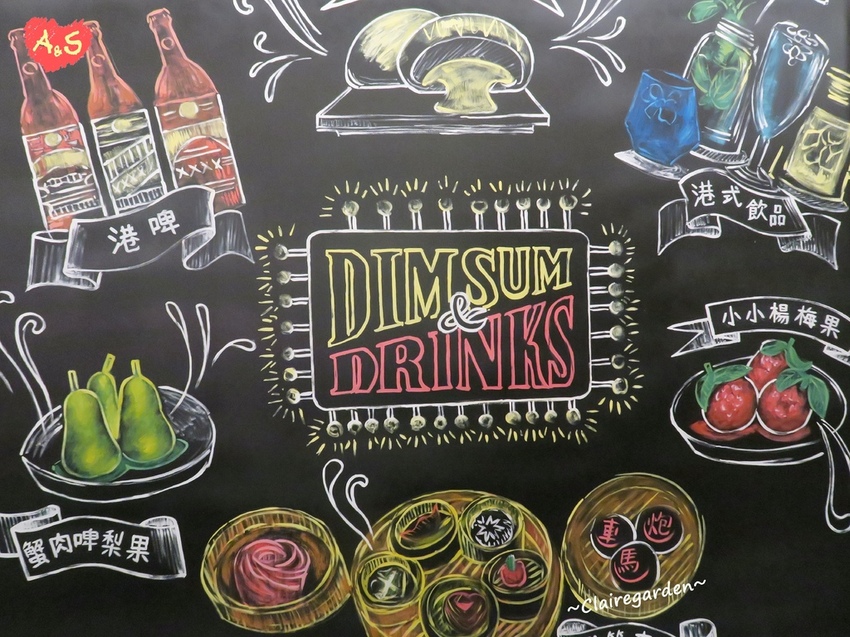 A&S
港啤
港式飲品
DIM SUM
&
DRINKS
小小楊梅果
蟹肉啤梨果
車 炮
馬
~Clairegarden~